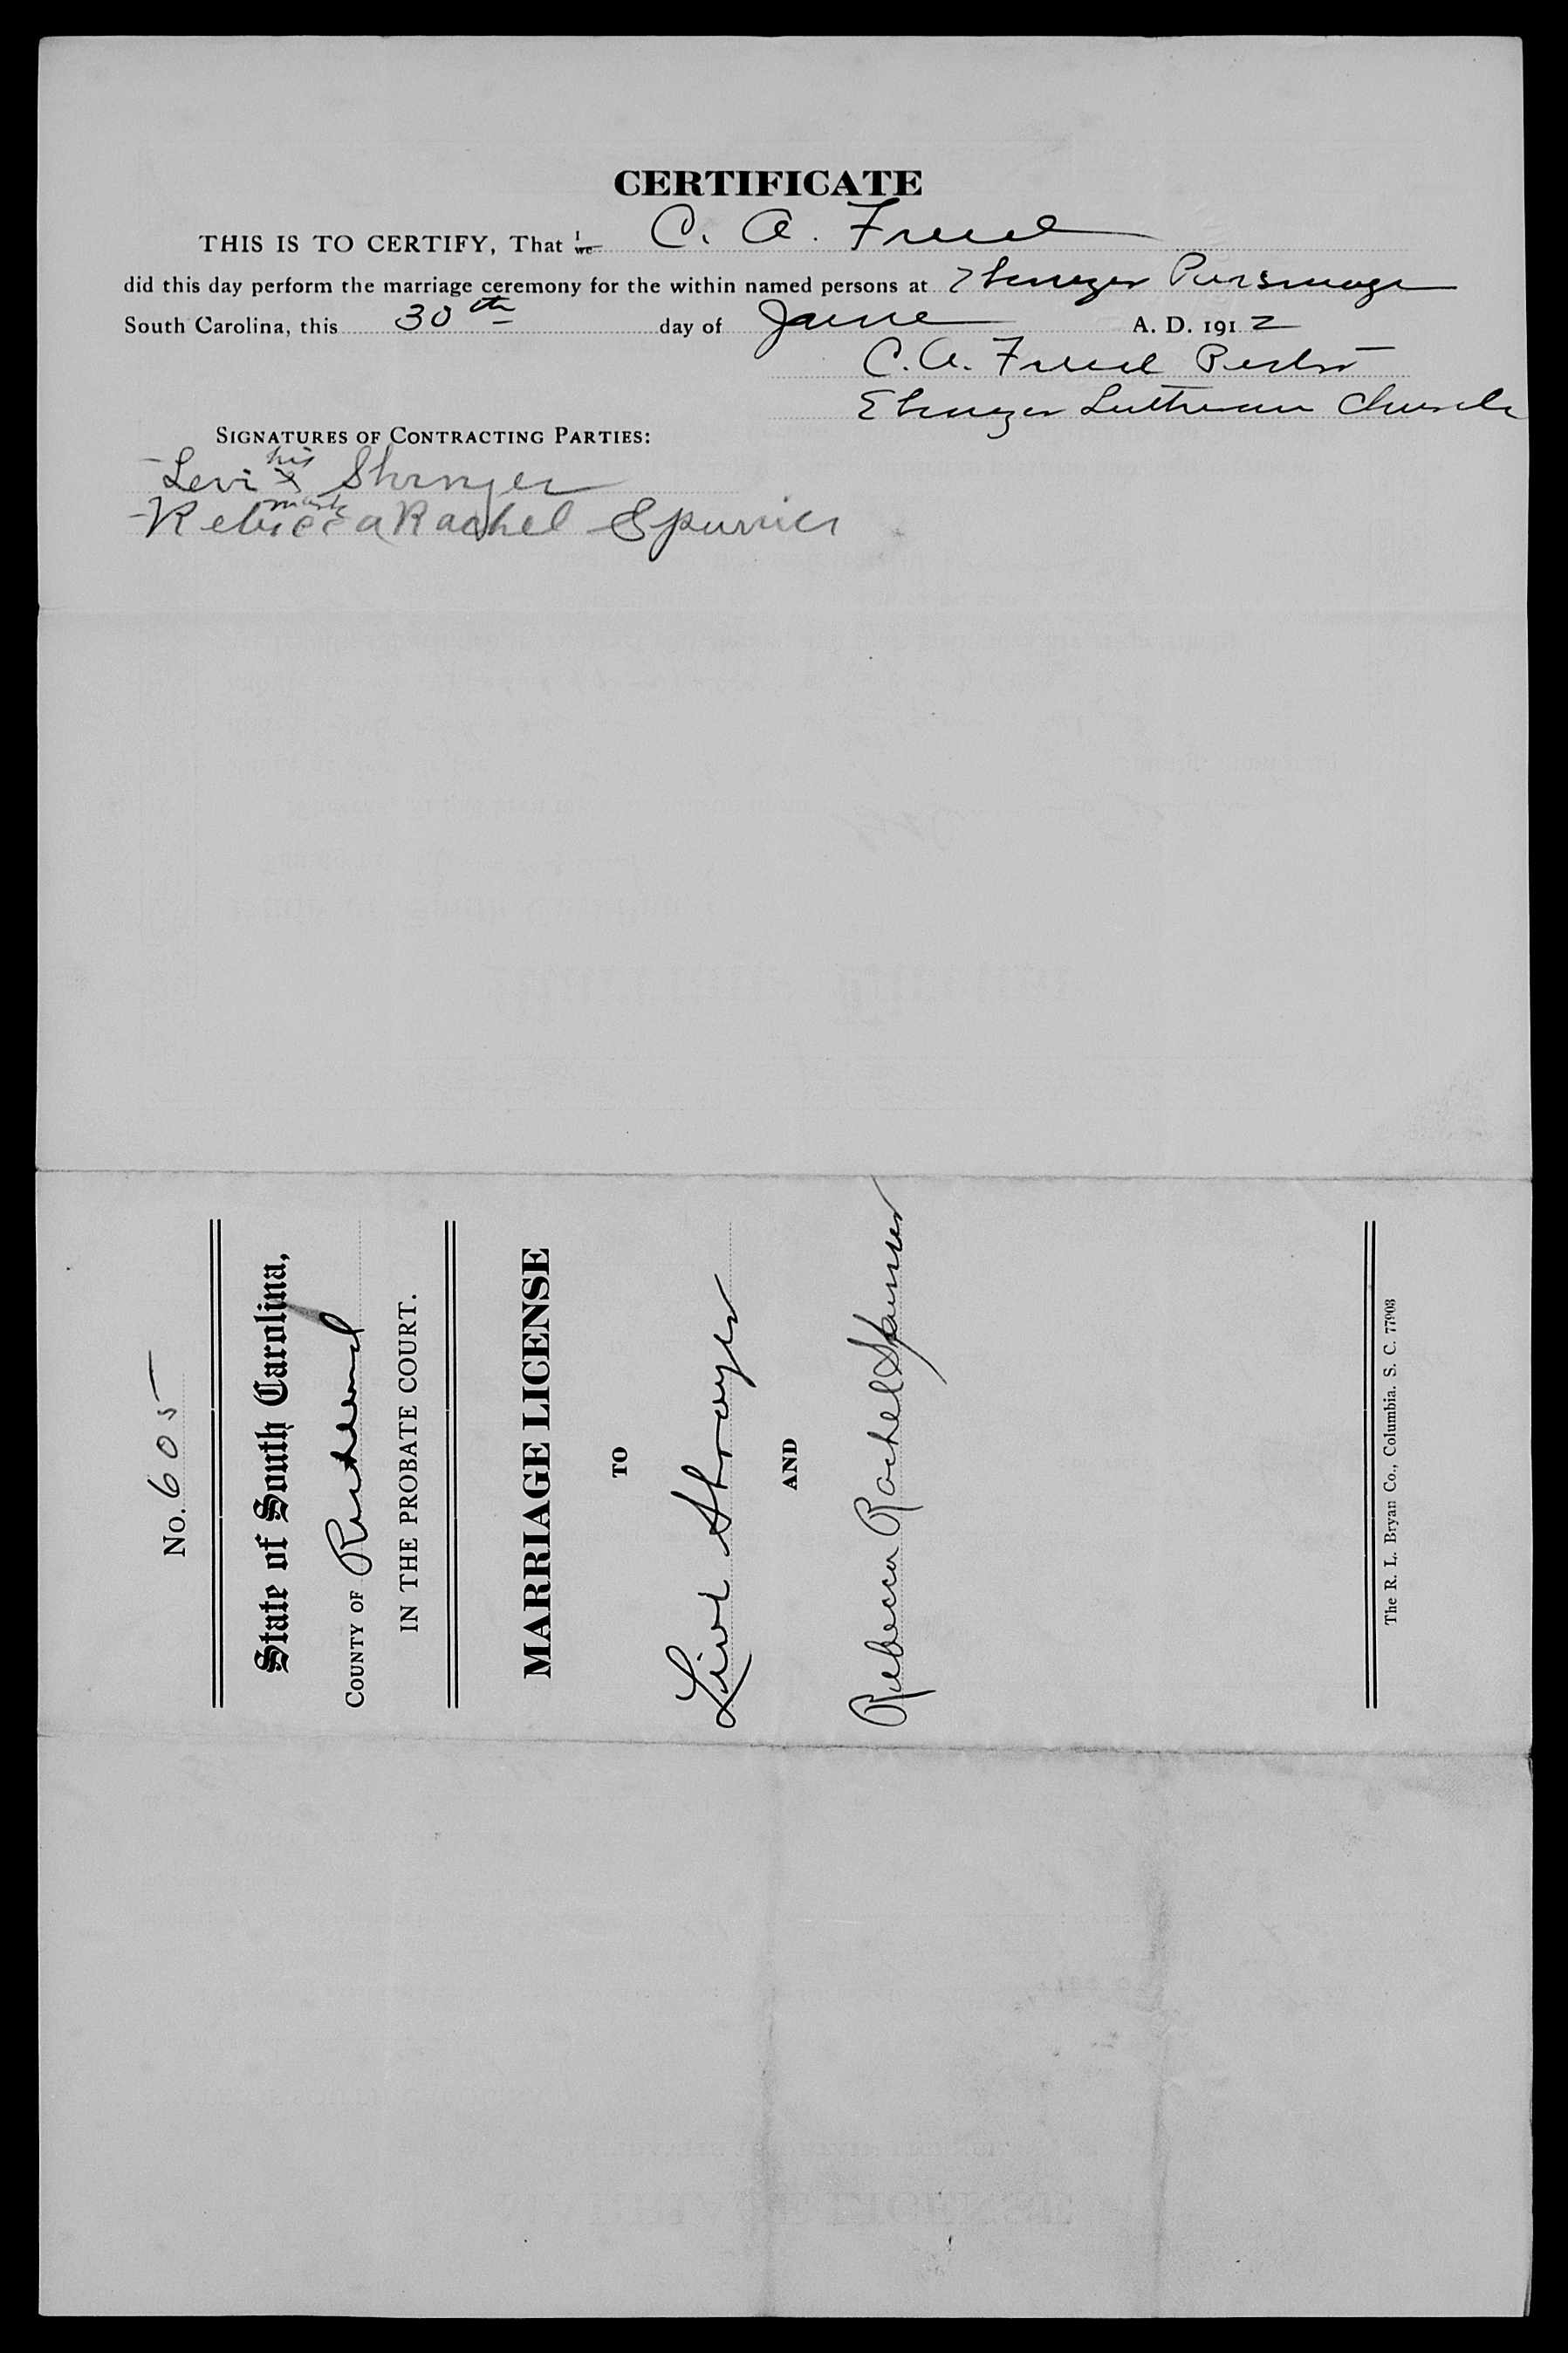 CERTIFICATE
THIS IS TO CERTIFY, That I we C. A. Freed
did this day perform the marriage ceremony for the within named persons at Ebenezer Parsonage
South Carolina, this 30th day of June A. D. 1912
C. A. Freed Pastor
Ebenezer Lutheran Church
SIGNATURES OF CONTRACTING PARTIES:
his
Levi x
mark
Rebecca Rachel Spurrier
No. 605
State of South Carolina,
COUNTY OF Richland
IN THE PROBATE COURT.
MARRIAGE LICENSE
TO
AND
Rebecca Rachel
The R. L. Bryan Co., Columbia. S. C. 77903